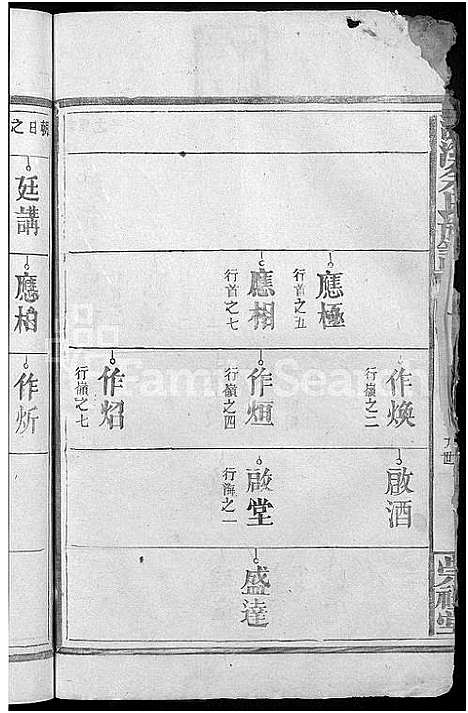 應極
行首之五
應相
行首之七
作煥
行嶺之二
作烜
行嶺之四
作炤
行嶺之七
啟酒
啟堂
行海之一
盛達
朝日之
廷講
應柏
作炘
九世
FamilySearch